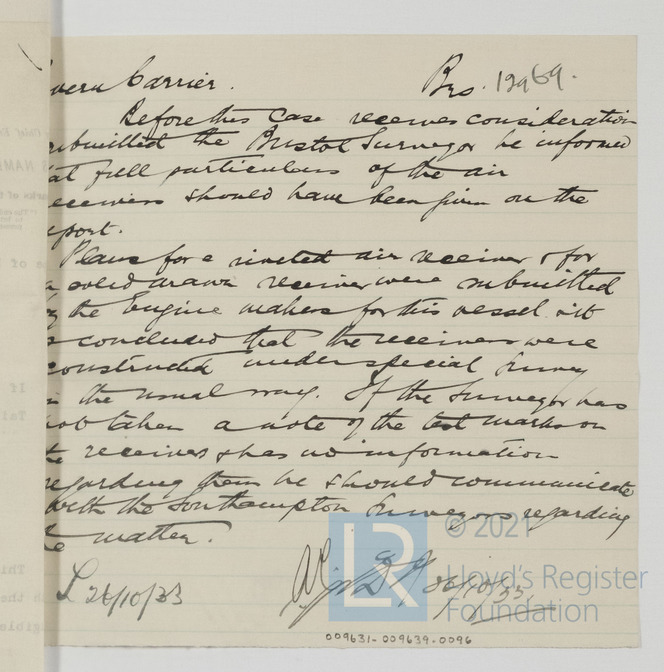 vern Carrier. Brs. 12969.
Before this case receives consideration
submitted the Bristol Surveyor be informed
at full particulars of the air
eceivers should have been given on the
eport.
Plans for a riveted air receiver & for
a solid drawn receiver were submitted
by the Engine makers for this vessel & it
s concluded that the receivers were
constructed under special Survey
n the usual way. If the Surveyor has
not taken a note of the test marks on
the receivers & has no information
regarding them he should communicate
with the Southampton Surveyors regarding
the matter.
L 26/10/33
26/10/33.
LR
© 2021
Lloyd's Register
Foundation
009631-009639-0096